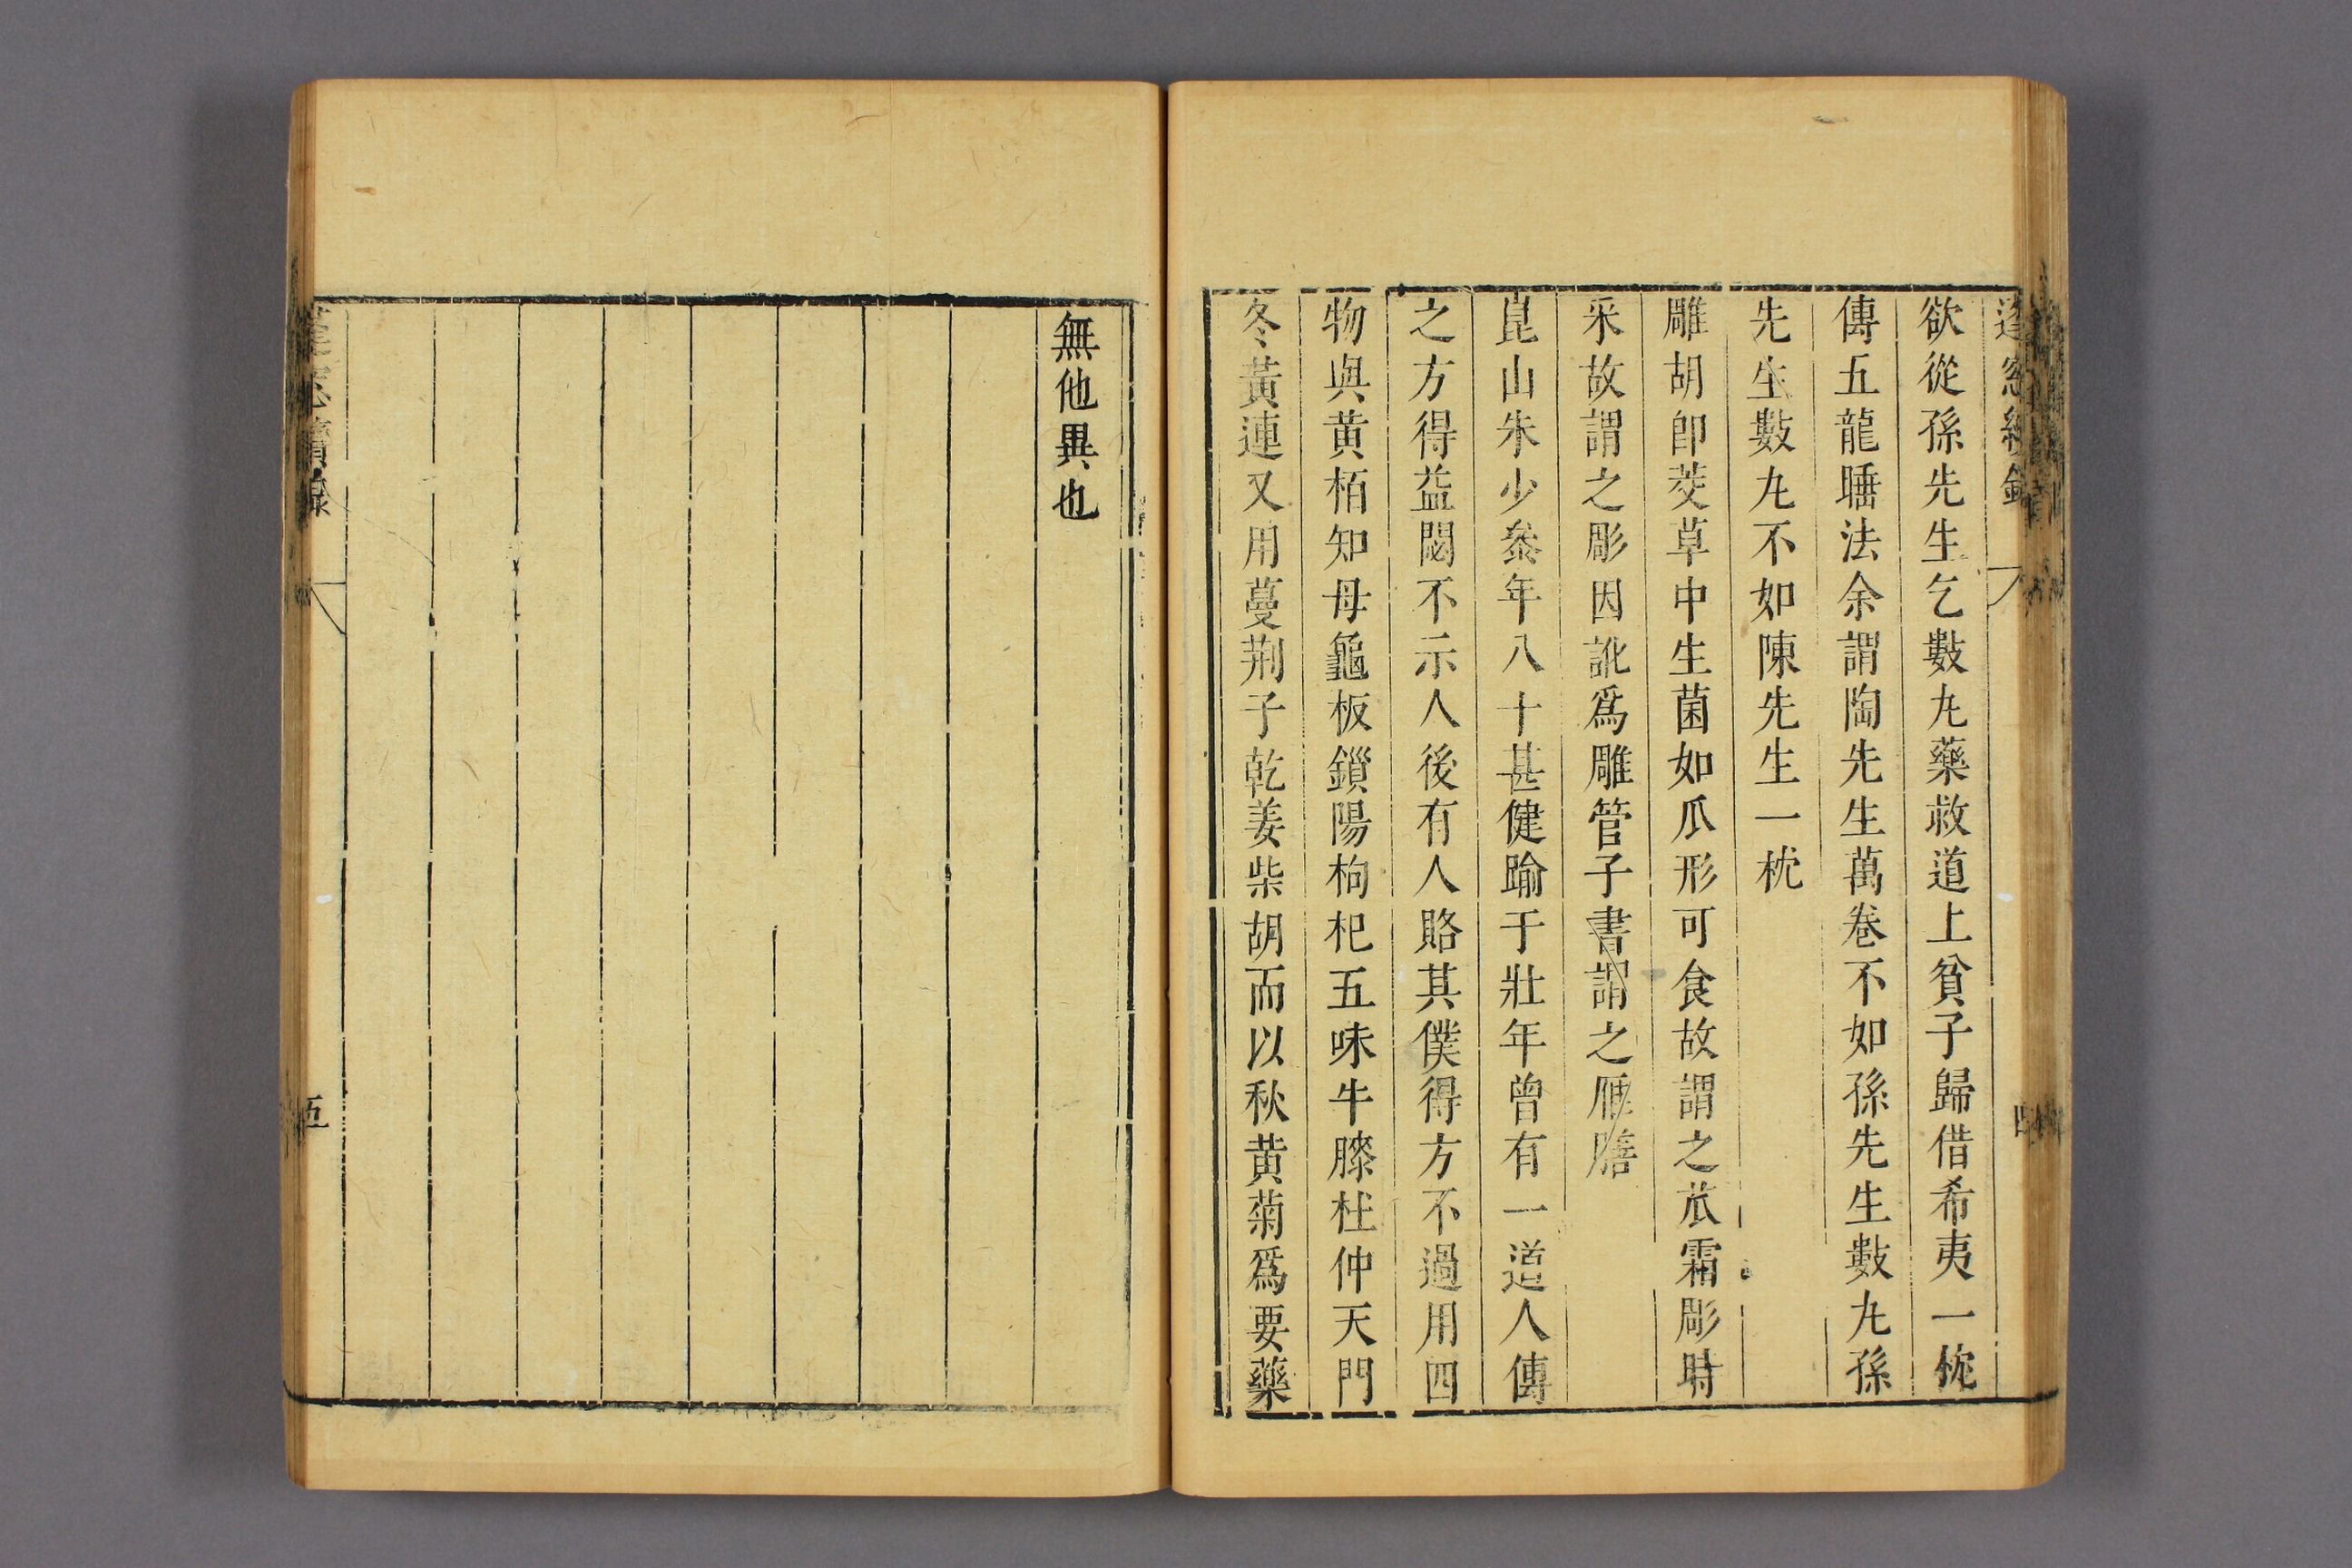 欲從孫先生乞數丸藥救道上貧子歸借希夷一枕
傳五龍睡法余謂陶先生萬卷不如孫先生數丸孫
先生數丸不如陳先生一枕
雕胡卽茭草中生菌如瓜形可食故謂之苽霜彫時
采故謂之彫因訛爲雕管子書謂之雁膳
崑山朱少叅年八十甚健踰于壯年曾有一道人傳
之方得益閟不示人後有人賂其僕得方不過用四
物與黃栢知母龜板鎻陽枸杞五味牛膝杜仲天門
冬黃連又用蔓荆子乾姜柴胡而以秋黃菊爲要藥
無他異也
五